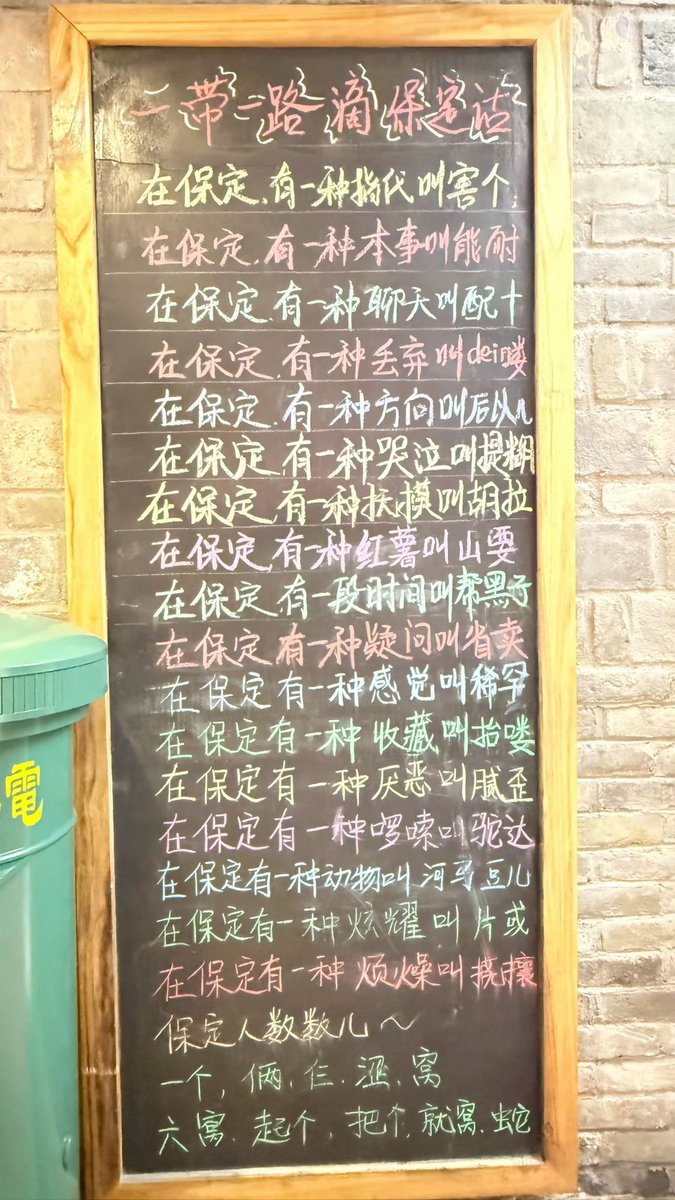 一带一路滴保定话
在保定.有一种指代叫害个
在保定.有一种本事叫能耐
在保定.有一种聊天叫配十
在保定.有一种丢弃叫dein喽
在保定.有一种方向叫后从儿
在保定.有一种哭泣叫提糊
在保定.有一种抚摸叫胡拉
在保定.有一种红薯叫山要
在保定.有一段时间叫帮黑子
在保定有一种疑问叫省卖
在保定有一种感觉叫稀罕
在保定有一种收藏叫抬喽
在保定有一种厌恶叫腻歪
在保定有一种啰嗦叫驼达
在保定有一种动物叫河马豆儿
在保定有一种炫耀叫片或
在保定有一种烦燥叫挠攘
保定人数数儿～
一个,俩.仨.涩.窝
六窝.起个,把个.就窝.蛇
電